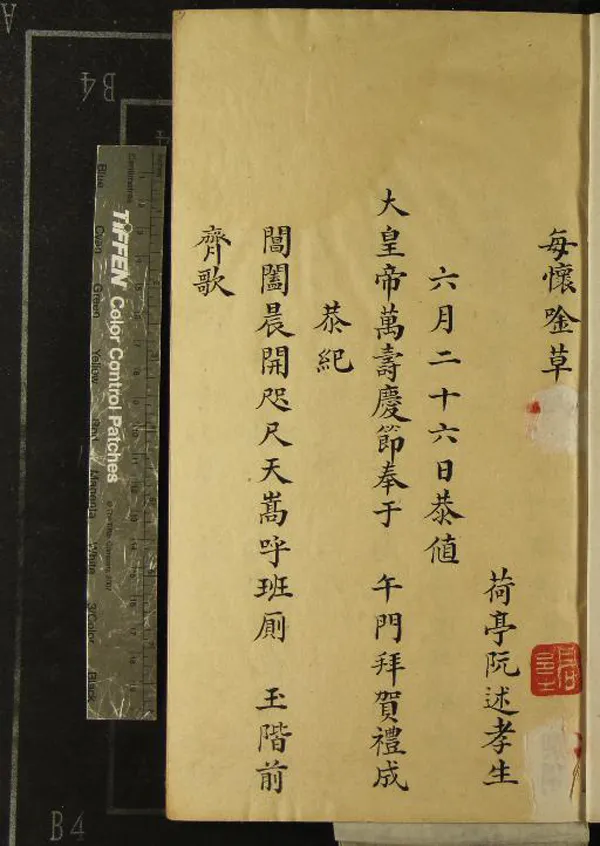 每懷唫草
荷亭阮述孝生
六月二十六日恭值
大皇帝萬壽慶節奉于 午門拜賀禮成
恭紀
閶闔晨開咫尺天嵩呼班厠 玉階前
齊歌
TIFFEN Color Control Patches
Blue
Cyan
Green
Yellow
Red
Magenta
White
3/Color
Black
Centimetres
A
B4
4
B4